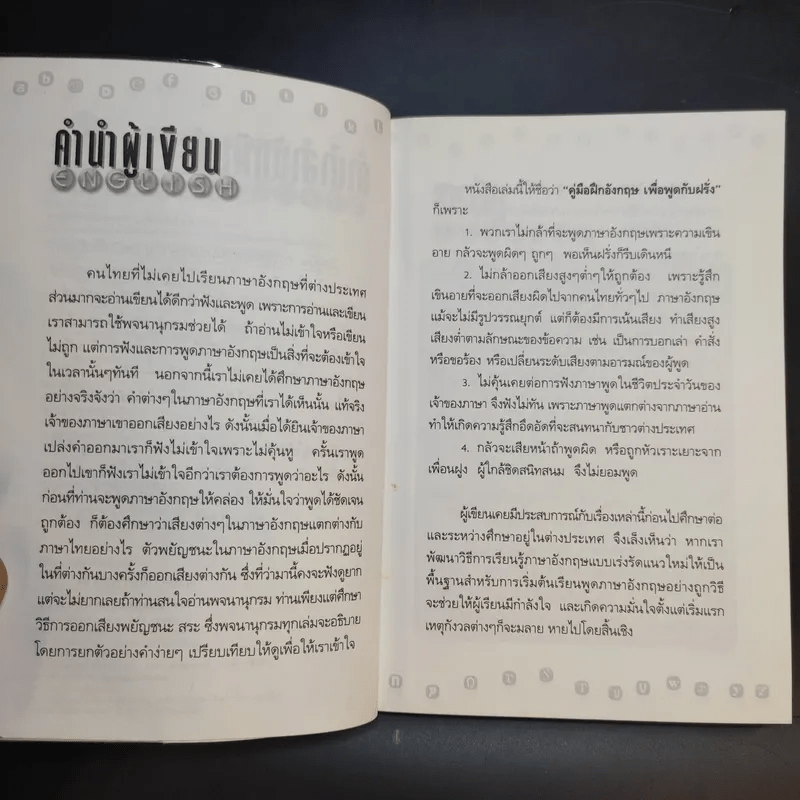 a b c d e f g h i j k l
คำนำผู้เขียน
ENGLISH
คนไทยที่ไม่เคยไปเรียนภาษาอังกฤษที่ต่างประเทศ
ส่วนมากจะอ่านเขียนได้ดีกว่าฟังและพูด เพราะการอ่านและเขียน
เราสามารถใช้พจนานุกรมช่วยได้ ถ้าอ่านไม่เข้าใจหรือเขียน
ไม่ถูก แต่การฟังและการพูดภาษาอังกฤษเป็นสิ่งที่จะต้องเข้าใจ
ในเวลานั้นๆทันที นอกจากนี้เราไม่เคยได้ศึกษาภาษาอังกฤษ
อย่างจริงจังว่า คำต่างๆในภาษาอังกฤษที่เราได้เห็นนั้น แท้จริง
เจ้าของภาษาเขาออกเสียงอย่างไร ดังนั้นเมื่อได้ยินเจ้าของภาษา
เปล่งคำออกมาเราก็ฟังไม่เข้าใจเพราะไม่คุ้นหู ครั้นเราพูด
ออกไปเขาก็ฟังเราไม่เข้าใจอีกว่าเราต้องการพูดว่าอะไร ดังนั้น
ก่อนที่ท่านจะพูดภาษาอังกฤษให้คล่อง ให้มั่นใจว่าพูดได้ชัดเจน
ถูกต้อง ก็ต้องศึกษาว่าเสียงต่างๆในภาษาอังกฤษแตกต่างกับ
ภาษาไทยอย่างไร ตัวพยัญชนะในภาษาอังกฤษเมื่อปรากฏอยู่
ในที่ต่างกันบางครั้งก็ออกเสียงต่างกัน ซึ่งที่ว่ามานี้คงจะฟังดูยาก
แต่จะไม่ยากเลยถ้าท่านสนใจอ่านพจนานุกรม ท่านเพียงแต่ศึกษา
วิธีการออกเสียงพยัญชนะ สระ ซึ่งพจนานุกรมทุกเล่มจะอธิบาย
โดยการยกตัวอย่างคำง่ายๆ เปรียบเทียบให้ดูเพื่อให้เราเข้าใจ
หนังสือเล่มนี้ให้ชื่อว่า "คู่มือฝึกอังกฤษ เพื่อพูดกับฝรั่ง"
ก็เพราะ
1. พวกเราไม่กล้าที่จะพูดภาษาอังกฤษเพราะความเขิน
อาย กลัวจะพูดผิดๆ ถูกๆ พอเห็นฝรั่งก็รีบเดินหนี
2. ไม่กล้าออกเสียงสูงๆต่ำๆ ให้ถูกต้อง เพราะรู้สึก
เขินอายที่จะออกเสียงผิดไปจากคนไทยทั่วๆไป ภาษาอังกฤษ
แม้จะไม่มีรูปวรรณยุกต์ แต่ก็ต้องมีการเน้นเสียง ทำเสียงสูง
เสียงต่ำตามลักษณะของข้อความ เช่น เป็นการบอกเล่า คำสั่ง
หรือขอร้อง หรือเปลี่ยนระดับเสียงตามอารมณ์ของผู้พูด
3. ไม่คุ้นเคยต่อการฟังภาษาพูดในชีวิตประจำวันของ
เจ้าของภาษา จึงฟังไม่ทัน เพราะภาษาพูดแตกต่างจากภาษาอ่าน
ทำให้เกิดความรู้สึกอึดอัดที่จะสนทนากับชาวต่างประเทศ
4. กลัวจะเสียหน้าถ้าพูดผิด หรือถูกหัวเราะเยาะจาก
เพื่อนฝูง ผู้ใกล้ชิดสนิทสนม จึงไม่ยอมพูด
ผู้เขียนเคยมีประสบการณ์กับเรื่องเหล่านี้ก่อนไปศึกษาต่อ
และระหว่างศึกษาอยู่ในต่างประเทศ จึงเล็งเห็นว่า หากเรา
พัฒนาวิธีการเรียนรู้ภาษาอังกฤษแบบเร่งรัดแนวใหม่ให้เป็น
พื้นฐานสำหรับการเริ่มต้นเรียนพูดภาษาอังกฤษอย่างถูกวิธี
จะช่วยให้ผู้เรียนมีกำลังใจ และเกิดความมั่นใจตั้งแต่เริ่มแรก
เหตุกังวลต่างๆก็จะมลาย หายไปโดยสิ้นเชิง
n p q r s t u u w x y z